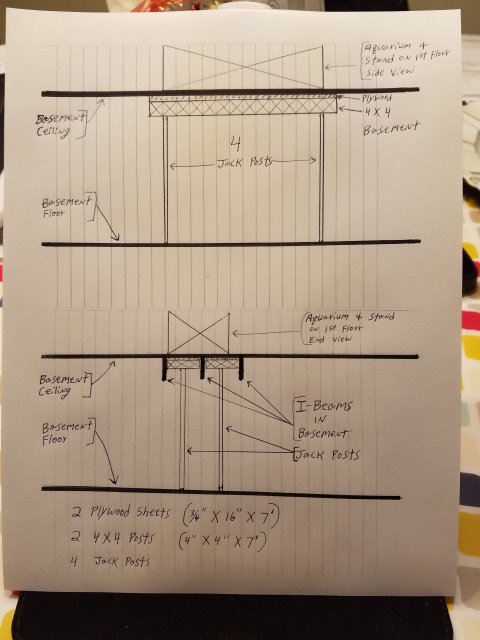 Aquarium &
Stand on 1st Floor
Side View
Plywood
4 X 4
Basement
Basement
Ceiling
4
Jack Posts
Basement
Floor
Aquarium & Stand
on 1st Floor
End View
Basement
Ceiling
I-Beams
in
Basement
Basement
Floor
Jack Posts
2 Plywood Sheets (3/4" X 16" X 7')
2 4X4 Posts (4" X 4" X 7')
4 Jack Posts